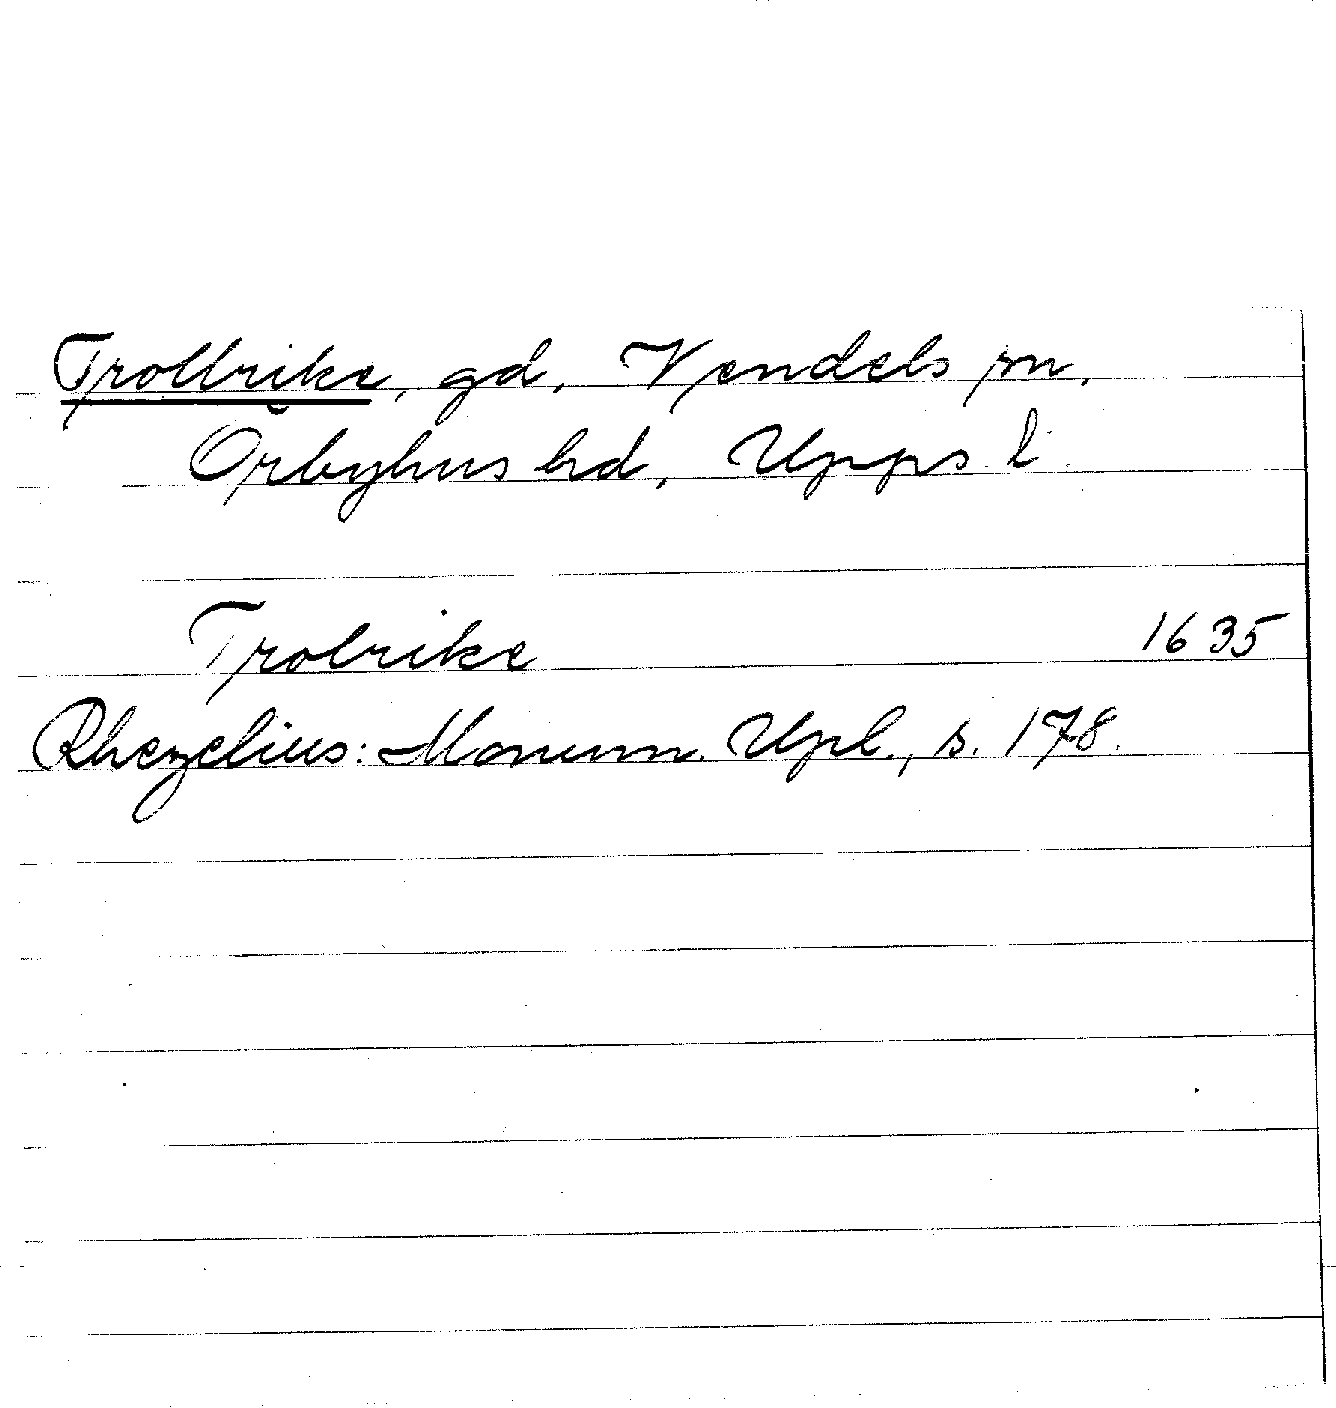 Trollrike, gd, Vendels sn,
Örbyhus hd, Upps l.
Trolrike 1635
Rhezelius: Monum. Upl., s. 178.